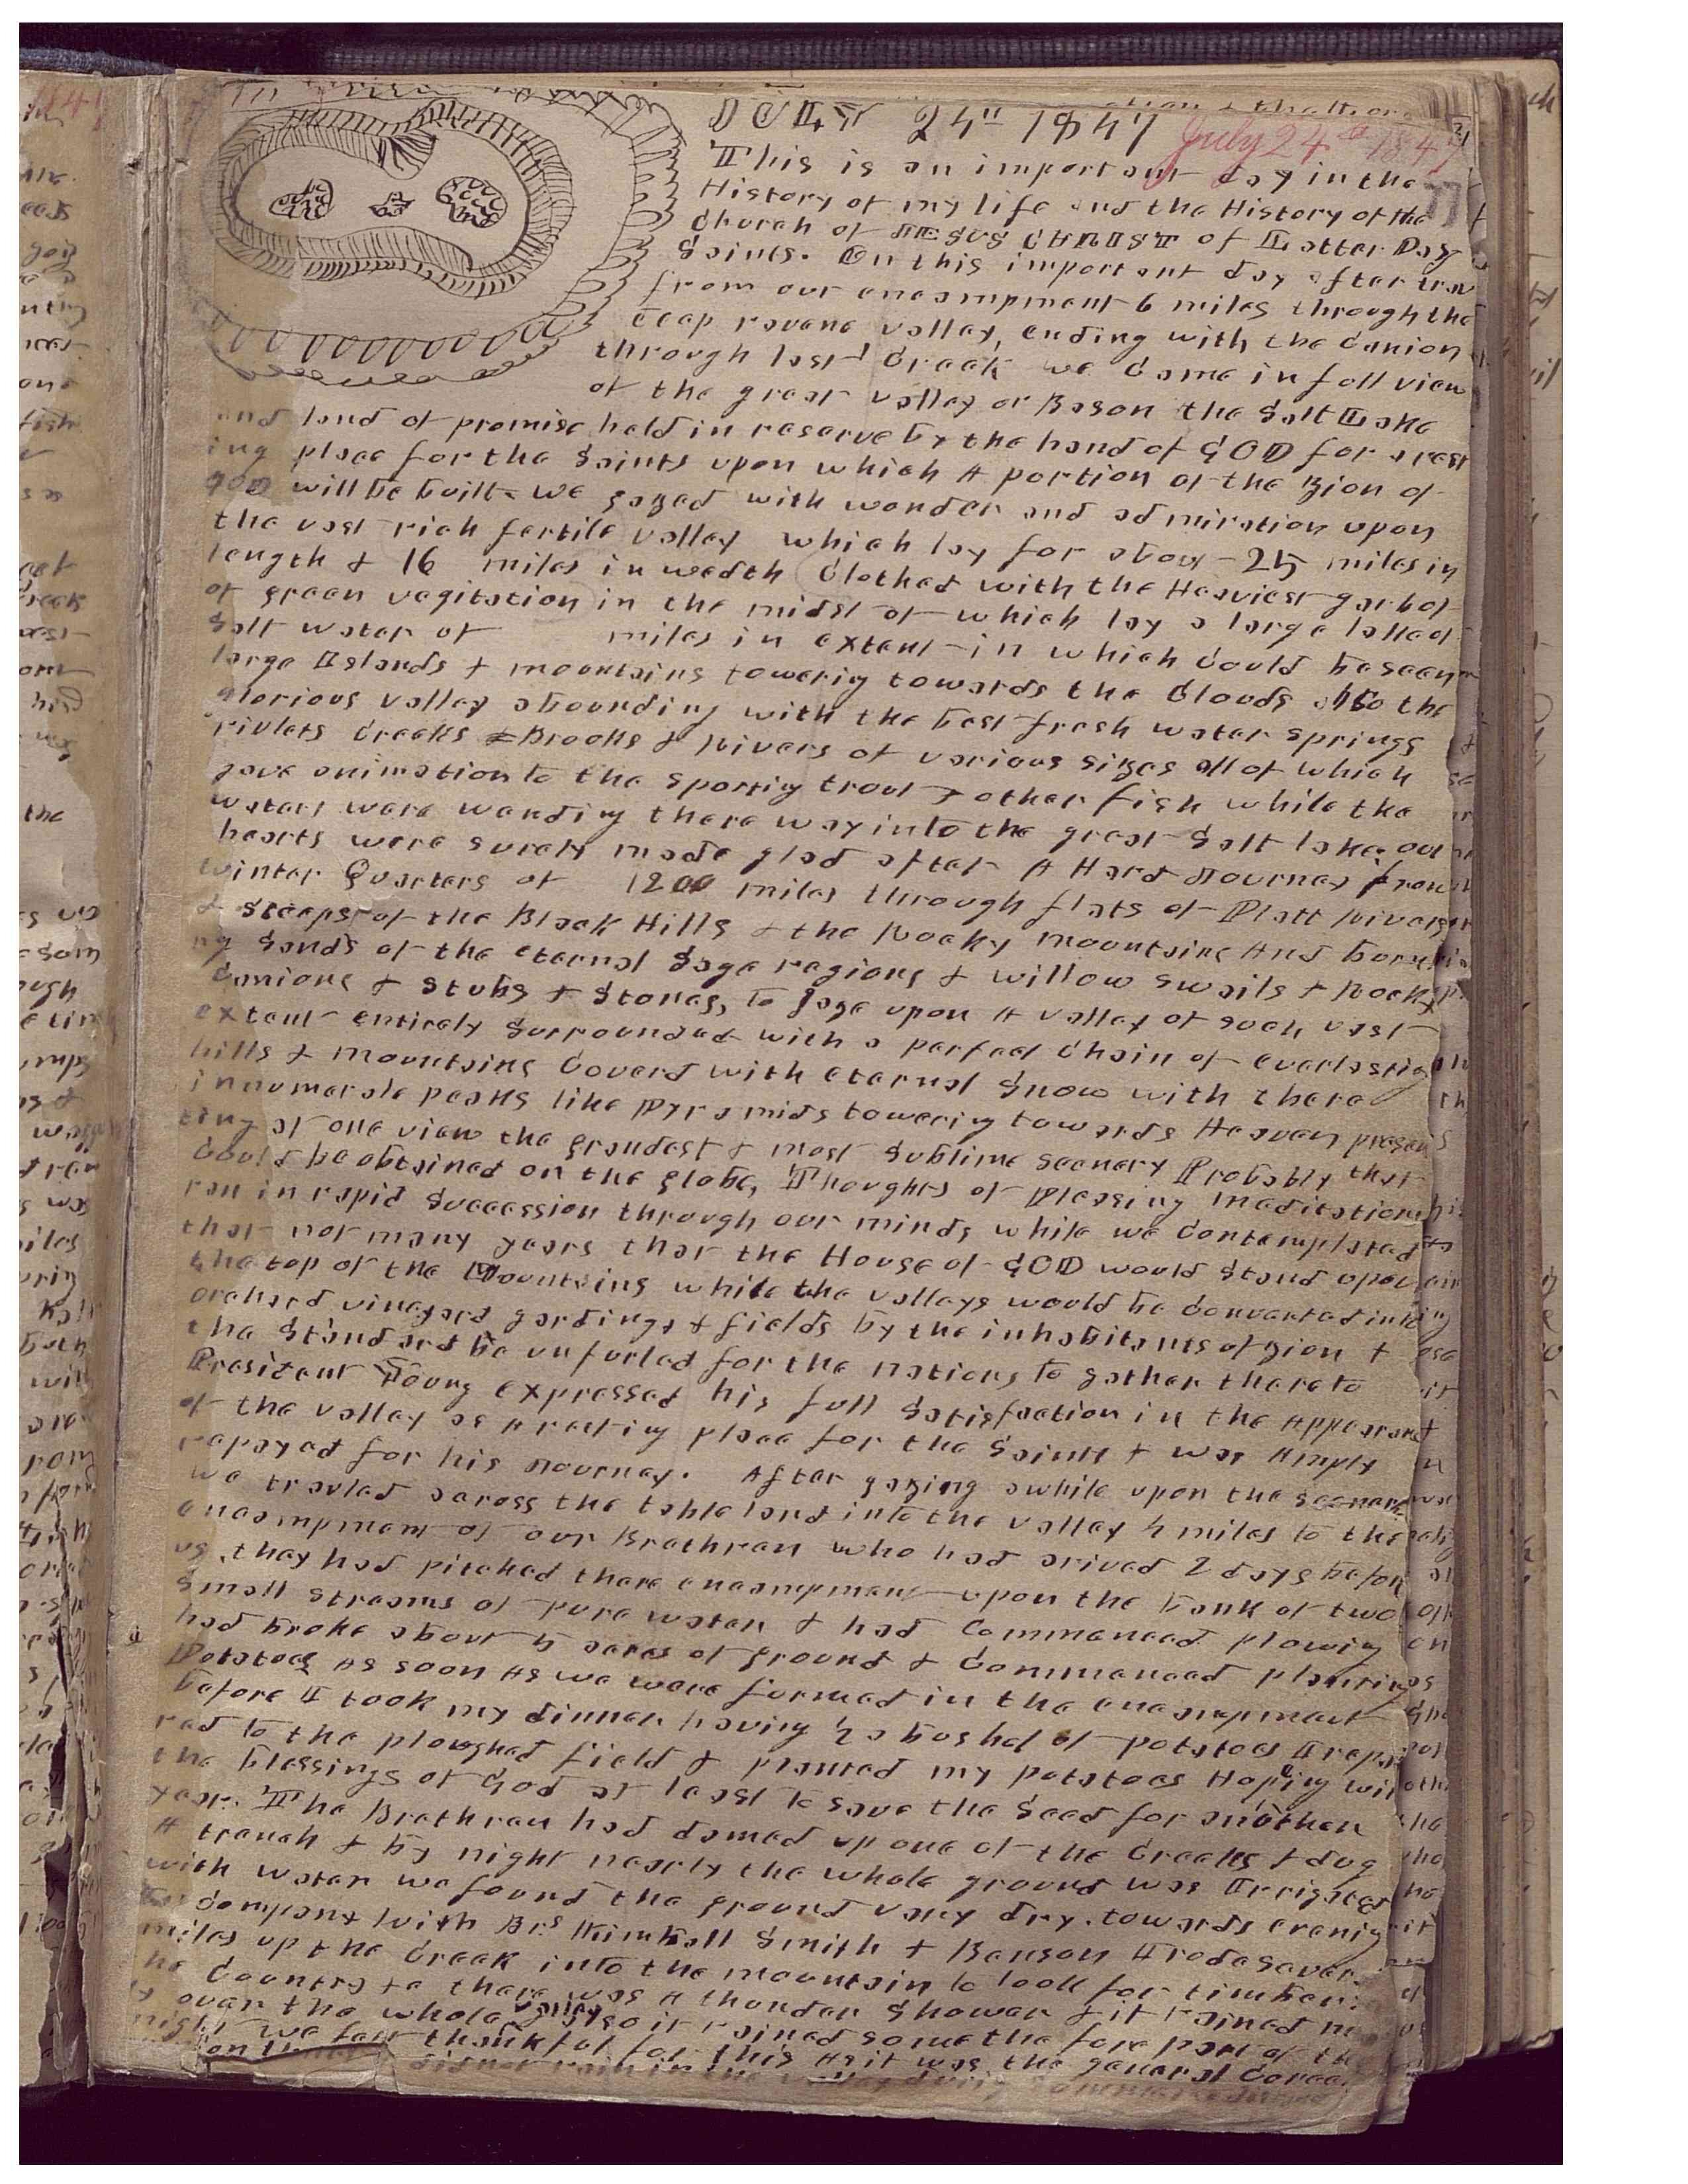 In view
JULY 24th 1847 July 24th 1847
This is an important day in the
History of my life and the History of the
Church of JESUS CHRIST of Latter Day
Saints. On this important day after trav
from our encampment 6 miles through the
deep ravene valley, ending with the Canion
through last Creek we Came in full view
of the great valley or Bason the Salt Lake
and land of promise held in reserve by the hand of GOD for a rest
ing place for the Saints upon which A portion of the Zion of
GOD will be built. We gazed with wonder and admiration upon
the vast rich fertile valley which lay for about 25 miles in
length & 16 miles in wedth Clothed with the Heaviest garb of
of green vegitation in the midst of which lay a large lake of
Salt water of miles in extent in which Could be seen
large Islands & mountains towerig towards the Clouds also the
glorious valley abounding with the best fresh water springs
rivlets Creeks & Brooks & Rivers of various sizes all of which
gave animation to the sportig trout & other fish while the
waters were wending there way into the great Salt lake. our
hearts were surely made glad after A Hard Journey from
winter Quarters of 1200 miles through flats of Platt River
& steeps of the Black Hills & the Rocky mountains And burni
ng sands of the eternal Sage regions & willow swails & Rocky
Canions & stubs & Stones, to gaze upon A valley of such vast
extent entirely Surrounded with a perfect Chain of everlastig
hills & mountains Coverd with eternal Snow with there
inumerable peaks like Pyramids towering towards Heaven presen
ting at one view the grandest & most sublime scenery Probably that
Could be obtained on the globe, Thoughts of Pleasing meditations
ran in rapid Succession through our minds while we Contemplated
that not many years that the House of GOD would Stand upon
the top of the Mountains while the valleys would be Converted into
orchard vineyard gardings & fields by the inhabitants of Zion &
the Standard be unfurled for the nations to gather there to
President Young expressed his full Satisfaction in the Appearance
of the valley as A resting place for the Saints & was Amply
repayed for his Journey. After gazing awhile upon the scenery
we traveled across the table land into the valley 4 miles to the
encampment of our Brethren who had arived 2 days before
us. they had pitched there encampment upon the bank of two
small streams of pure water & had Commenced plowing
had broke about 5 acres of ground & Commenced planting
Potatoes As soon As we were formed in the encampment
before I took my dinner having ½ a bushel of potatoes I repa
red to the ploughed field & planted my potatoes Hoping with
the blessings of God at least to save the Seed for another
year. The Brethren had damed up one of the Creeks & dug
A trench & by night nearly the whole ground was Irrigated
with water we found the ground very dry. towards evenig
in Company with Brs Kimball Smith & Benson I rode several
miles up the Creek into the mountain to look for timber
the Country &c there was A thunder Shower & it rained
over the whole valley also it rained some the fore part of the
night we felt thankful for this As it was the general